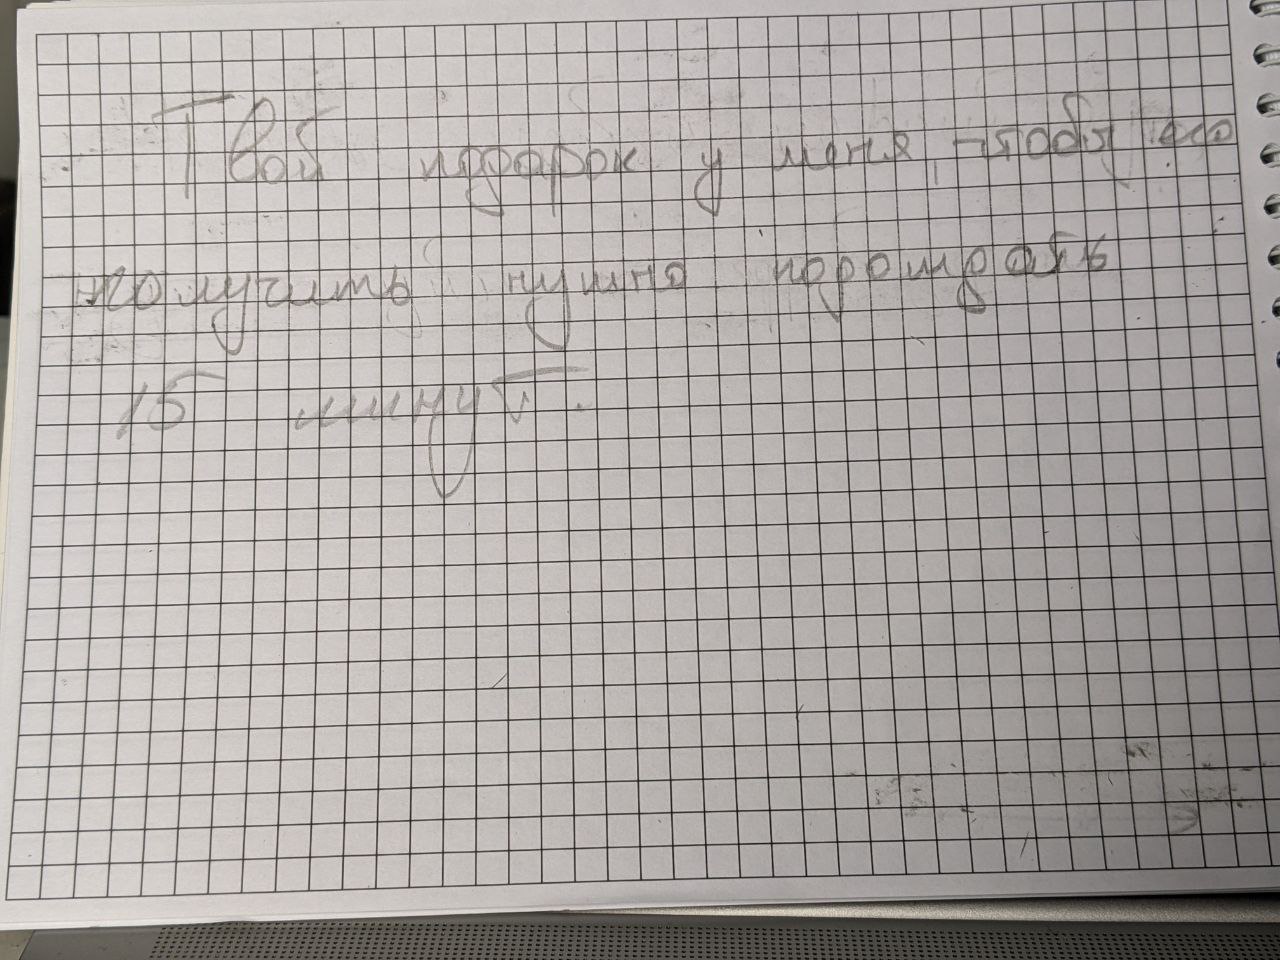 Твой пдарок у меня, чтобы его
получить нужно подождать
15 минут.